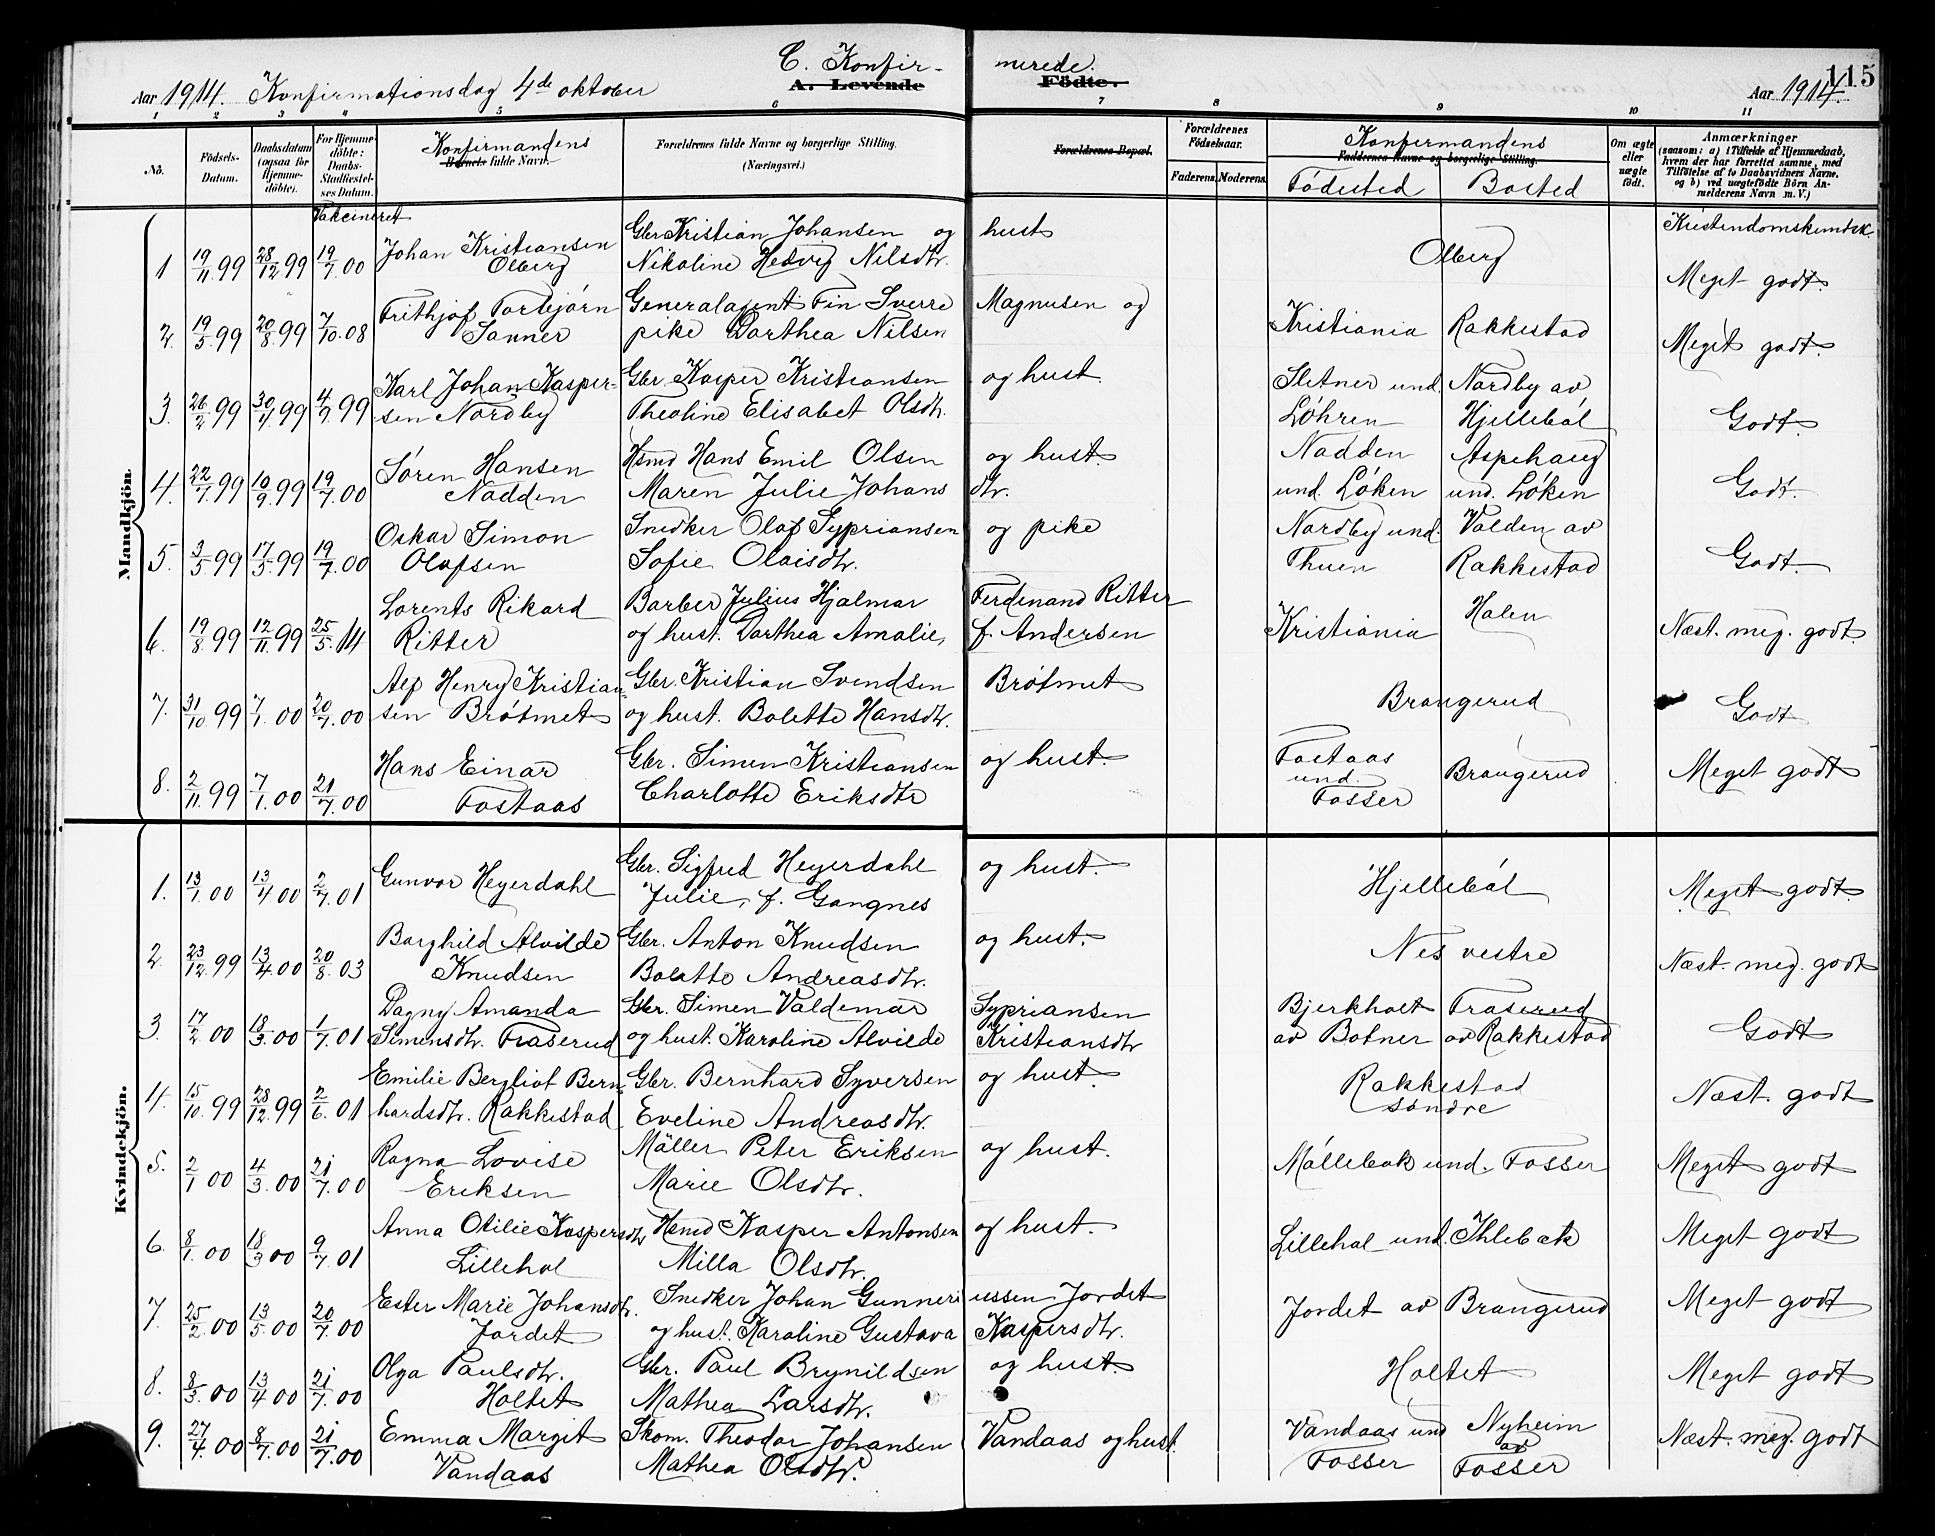 C. Konfir- merede.
Aar 1914. Konfirmationsdag 4de oktober A. Levende Födte. Aar 1914. 115
1 2 3 4 5 6 7 8 9 10 11
No. Födsels-Datum. Daabsdatum (ogsaa for Hjemme-döbte). For Hjemme-döbte: Daabs-Stadfæstel-ses Datum. Konfirmandens Barnets fulde Navn. Forældrenes fulde Navne og borgerlige Stilling. (Næringsvei.) Forældrenes Bopæl. Forældrenes Födselsaar. Faderens. Moderens. Konfirmandens Faddernes Navne og borgerlige Stilling. Födested Bosted Om ægte eller uægte födt. Anmærkninger (saasom: a) i Tilfælde af Hjemmedaab, hvem der har forrettet samme, med Tilföielse af to Daabsvidners Navne, og b) ved uægtefödte Börn An-melderens Navn m. V.)
Vakcineret Kristendomskundsk.
Mandkjön.
1 19/11 99 28/12 99 19/7 00 Johan Kristiansen Gbr. Kristian Johansen og hust
Olberg Nikoline Hedvig Nilsdtr. Olberg Meget godt.
2. 19/5 99 20/8 99 7/10 08 Frithjof Torbjörn Generalagent Fin Sverre Magnusen og
Sanner pike Dorthea Nilsen Kristiania Rakkestad Meget godt.
3. 26/2 99 30/4 99 4/7 99 Karl Johan Kasper- Gbr. Kasper Kristiansen og hust. Sletner und. Nordby av
sen Nordby Theoline Elisabet Olsdtr. Löhren Hjelleböl Godt.
4. 22/7 99 10/9 99 19/7 00 Sören Hansen Hsmd Hans Emil Olsen og hust. Nadden Aspehaug
Nadden Maren Julie Johans dtr. und. Löken und. Löken Godt.
5. 3/5 99 17/5 99 19/7 00 Oskar Simon Snedker Olaf Sypriansen og pike Nordby und. Valden av
Olafsen Sofie Olaisdtr. Thuen Rakkestad Godt.
6. 19/8 99 12/11 99 25/5 14 Lorents Rikard Barber Julius Hjalmar Ferdinand Ritter Halen
Ritter og hust. Dorthea Amalie, f. Andersen Kristiania Næst. meg. godt.
7. 31/10 99 7/1 00 20/7 00 Alf Henry Kristian- Gbr. Kristian Svendsen Brötmet
sen Brötmet og hust. Bolette Hansdtr. Brangerud Godt
8. 2/11 99 7/1 00 21/7 00 Hans Einar Gbr. Simen Kristiansen og hust. Fostaas und. Fosser Brangerud Meget godt
Fostaas Charlotte Eriksdtr
Kvindekjön.
1. 13/1 00 13/4 00 2/7 01 Gunvor Heyerdahl Gbr. Sigfred Heyerdahl og hust. Hjelleböl Meget godt.
Julie, f. Gangnes
2. 23/12 99 13/4 00 20/8 03 Borghild Alvilde Gbr. Anton Knudsen og hust. Nes vestre Næst. meg. godt
Knudsen Bolette Andreasdtr.
3. 17/2 00 18/3 00 1/7 01 Dagny Amanda Gbr. Simen Valdemar Sypriansen Bjerkholt Fraserud
Simensdtr. Fraserud og hust. Karoline Alvilde Kristiansdtr av Botner av Rakkestad Godt
4. 15/10 99 28/12 99 2/6 01 Emilie Bergliot Bern- Gbr. Bernhard Syversen og hust. Rakkestad
hardsdtr. Rakkestad Eveline Andreasdtr. söndre Næst. godt
5. 2/1 00 4/3 00 21/7 00 Ragna Lovise Möller Peter Eriksen og hust. Möllebak und. Fosser Meget godt
Eriksen Marie Olsdtr.
6. 8/1 00 18/3 00 9/7 01 Anna Otilie Kaspersdtr Hsmd Kasper Antonsen og hust. Lillehol und. Ihlebæk Meget godt
Lillehol Milla Olsdtr.
7. 25/2 00 13/5 00 20/7 00 Ester Marie Johansdtr. Snedker Johan Gunneri ussen Jordet Jordet av Brangerud Meget godt
Jordet og hust. Karoline Gustava Kaspersdtr.
8. 8/3 00 13/4 00 21/7 00 Olga Paulsdtr. Gbr. Paul Brynildsen og hust. Holtet Meget godt
Holtet Mathea Larsdtr.
9. 27/4 00 8/7 00 21/7 00 Emma Margit Skom. Theodor Johansen Vandaas og hust. Vandaas und Nyheim av Næst. meg. godt
Vandaas Mathea Olsdtr. Fosser Fosser